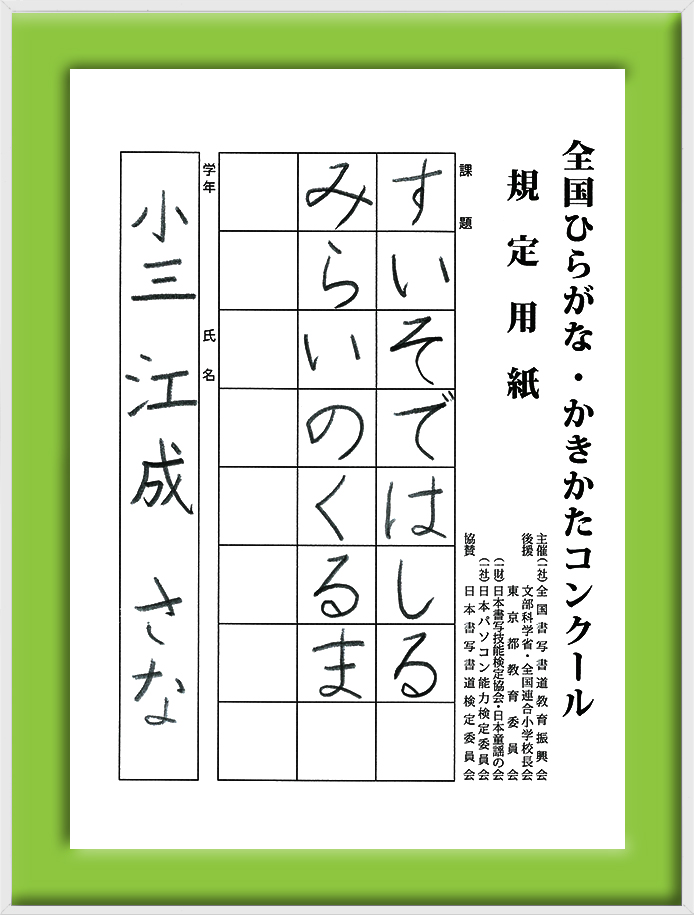 全国ひらがな・かきかたコンクール
規定用紙
主催 (一社)全国書写書道教育振興会
後援 文部科学省・全国連合小学校長会
東京都教育委員会
(一財)日本書写技能検定協会・日本童謡の会
(一社)日本パソコン能力検定委員会
協賛 日本書写書道検定委員会
課題
すいそではしる
みらいのくるま
学年 氏名
小三 江成 さな